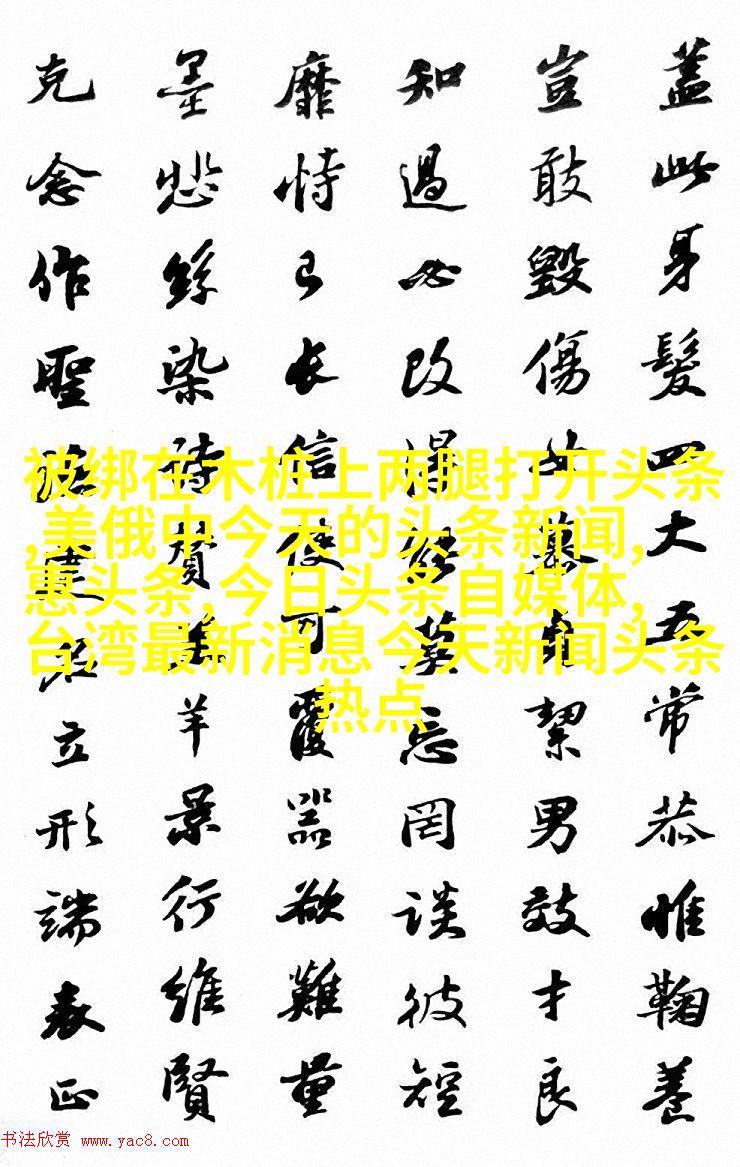 蓋此身髮四大五常恭惟鞠養
豈敢毀傷女慕貞絜男效才良
知過必改得能莫忘罔談彼短
靡恃己長信使可覆器欲難量
墨悲絲染詩贊羔羊景行維賢
克念作聖德建名立形端表正
被绑在木桩上两腿打开头条
,美俄中今天的头条新闻,
惠头条,今日头条自媒体,
台湾最新消息今天新闻头条
热点
书法欣赏 www.yac8.com